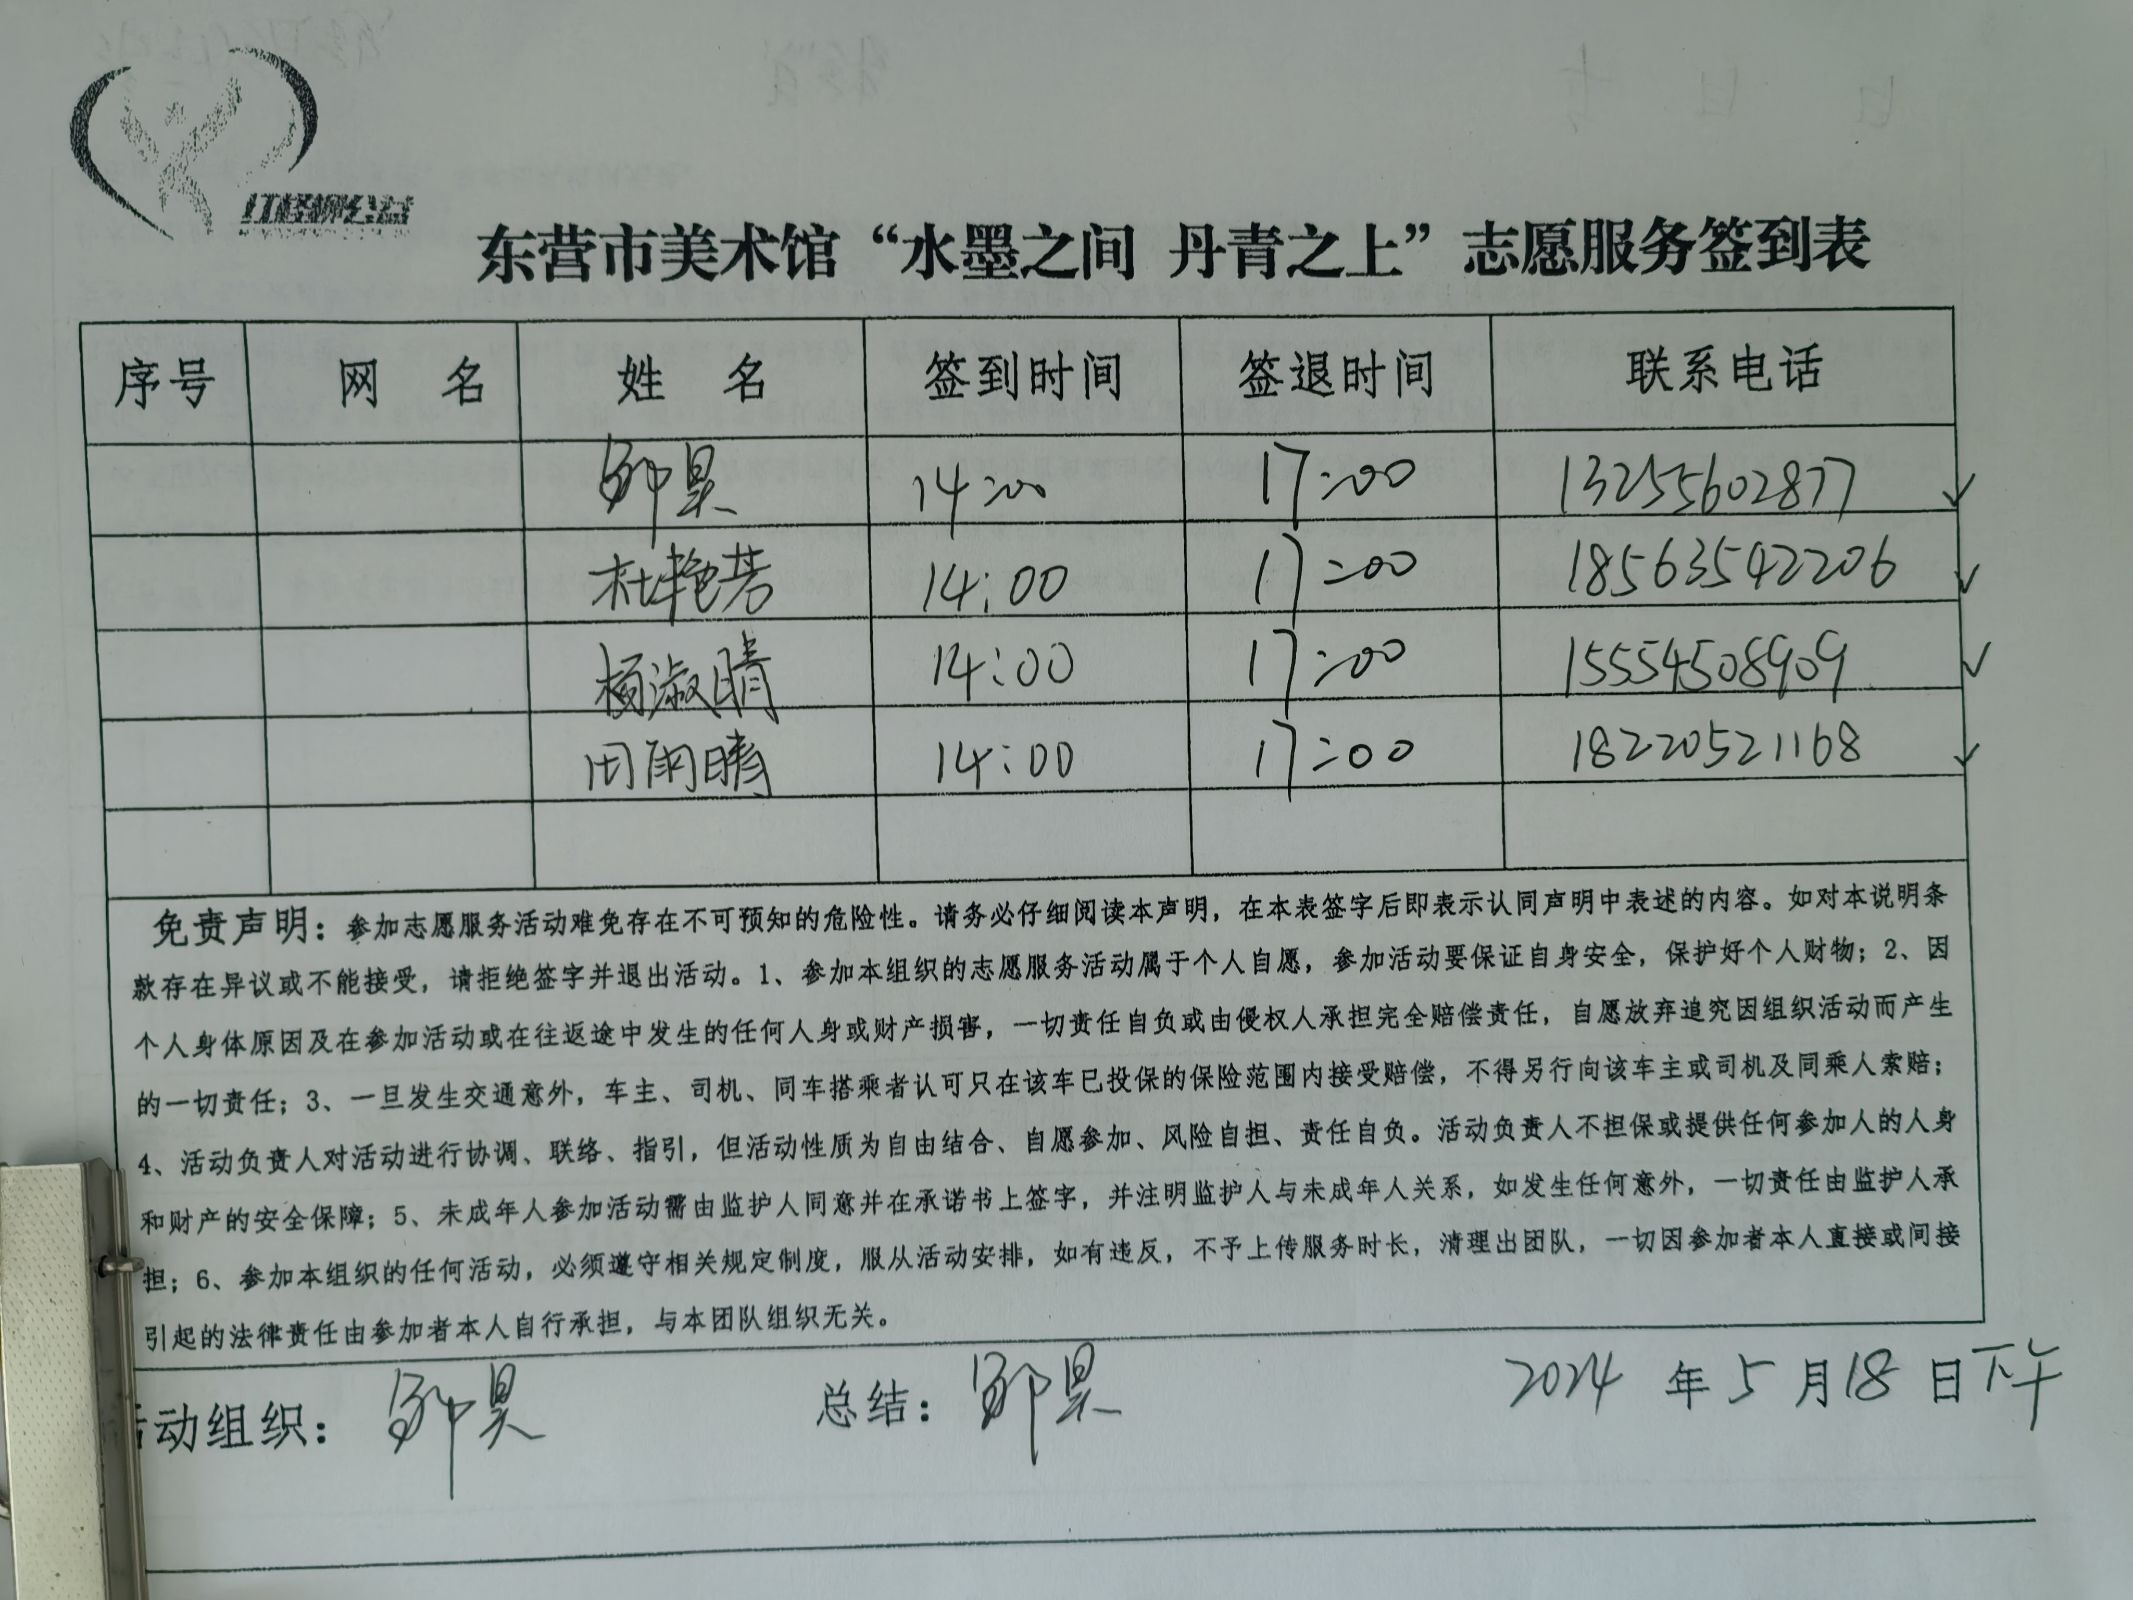 IT启明公益
东营市美术馆“水墨之间 丹青之上”志愿服务签到表
序号 网 名 姓 名 签到时间 签退时间 联系电话
昊 14:00 17:00 13255602877
杜艳芳 14:00 17:00 18563542206
杨淑晴 14:00 17:00 15554508909
田雨晴 14:00 17:00 18220521168
免责声明：参加志愿服务活动难免存在不可预知的危险性。请务必仔细阅读本声明，在本表签字后即表示认同声明中表述的内容。如对本说明条
款存在异议或不能接受，请拒绝签字并退出活动。1、参加本组织的志愿服务活动属于个人自愿，参加活动要保证自身安全，保护好个人财物；2、因
个人身体原因及在参加活动或在往返途中发生的任何人身或财产损害，一切责任自负或由侵权人承担完全赔偿责任，自愿放弃追究因组织活动而产生
的一切责任；3、一旦发生交通意外，车主、司机、同车搭乘者认可只在该车已投保的保险范围内接受赔偿，不得另行向该车主或司机及同乘人索赔；
4、活动负责人对活动进行协调、联络、指引，但活动性质为自由结合、自愿参加、风险自担、责任自负。活动负责人不担保或提供任何参加人的人身
和财产的安全保障；5、未成年人参加活动需由监护人同意并在承诺书上签字，并注明监护人与未成年人关系，如发生任何意外，一切责任由监护人承
担；6、参加本组织的任何活动，必须遵守相关规定制度，服从活动安排，如有违反，不予上传服务时长，清理出团队，一切因参加者本人直接或间接
引起的法律责任由参加者本人自行承担，与本团队组织无关。
活动组织： 昊 总结： 昊 2024 年 5 月 18 日下午